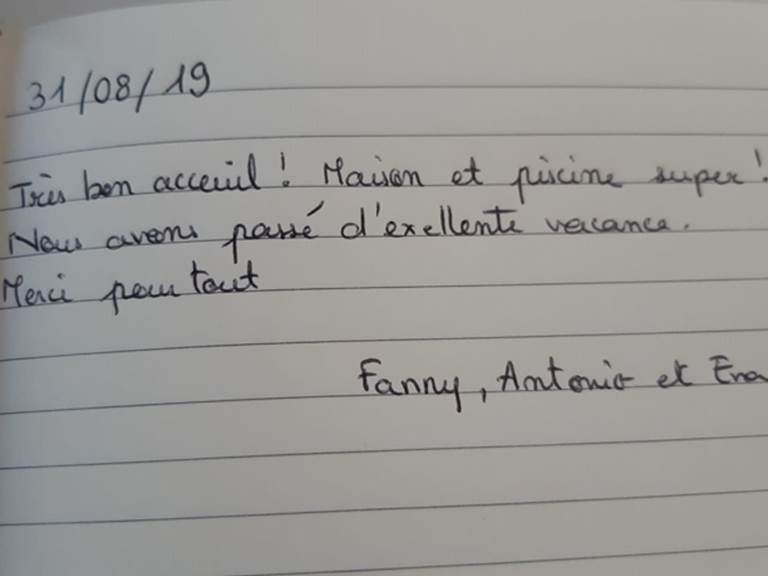 31/08/19
Très bon acceuil ! Maison et piscine super !
Nous avons passé d'exellente vacance.
Merci pour tout
Fanny, Antonio et